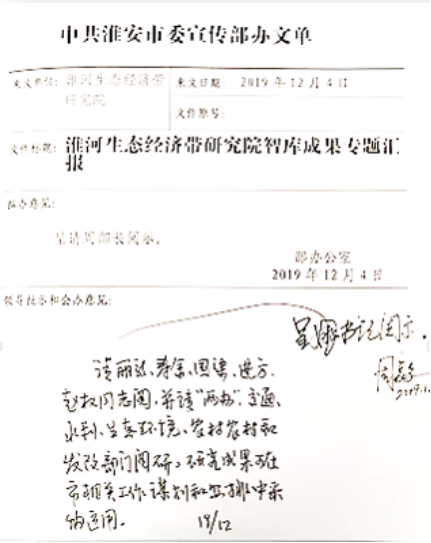 中共淮安市委宣传部办文单
来文单位: 淮河生态经济带研究院
来文日期: 2019年12月4日
文件编号:
文件标题: 淮河生态经济带研究院智库成果专题汇
报
拟办意见:
呈请周部长阅示。
部办公室
2019年12月4日
领导批示和会办意见:
书记阅示。
周
2019.1
请
同志阅,并请"两办"、交通、
水利、生态环境、农村农村和
发改部门阅研,研究成果可在
市相关工作谋划和安排中采
纳运用. 19/12